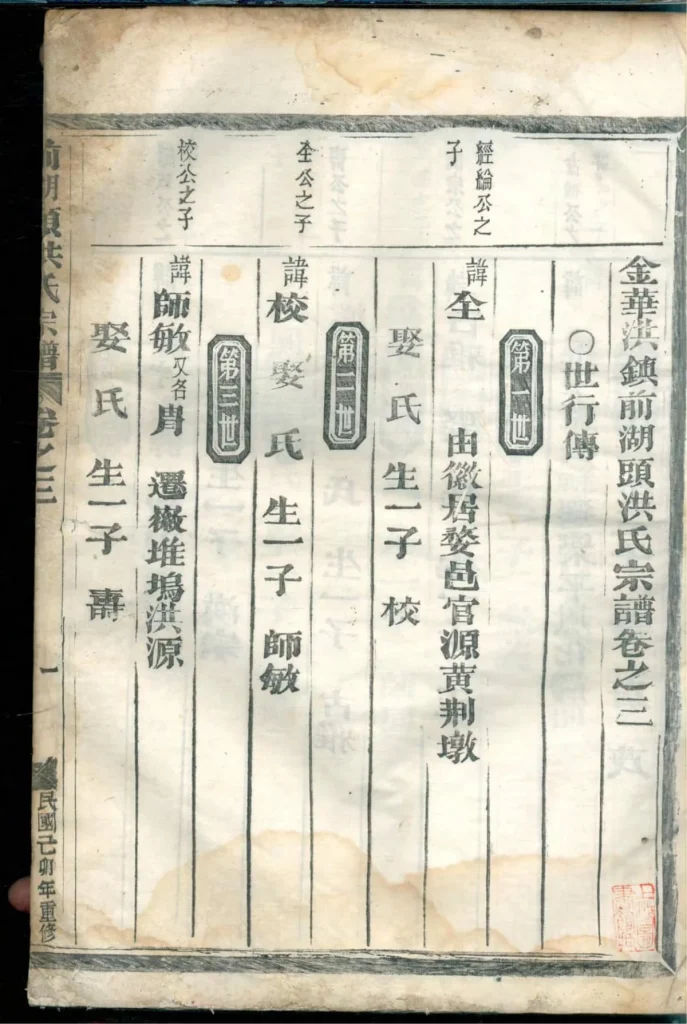 金華洪鎮前湖頭洪氏宗譜卷之三
〇世行傳
第一世
經綸公之子
諱全 由徽居婺邑官源黃荆墩
娶 氏 生一子 校
第二世
全公之子
諱校 娶 氏 生一子 師敏
第三世
校公之子
諱師敏又名胄 遷徽堆塢洪源
娶 氏 生一子 壽
前湖頭洪氏宗譜 卷之三 一 民國己卯年重修